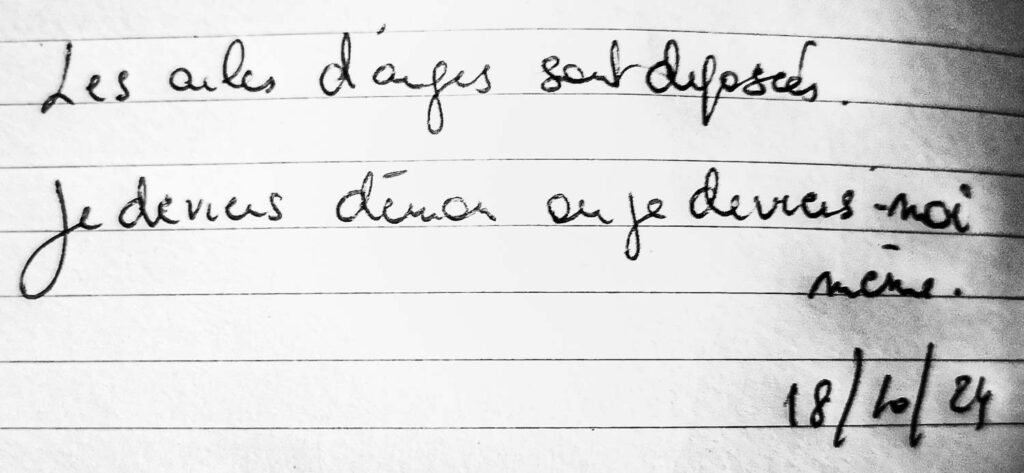 Les ailes d'anges sont déposées.
Je deviens démon ou je deviens-moi
même.
18/10/24